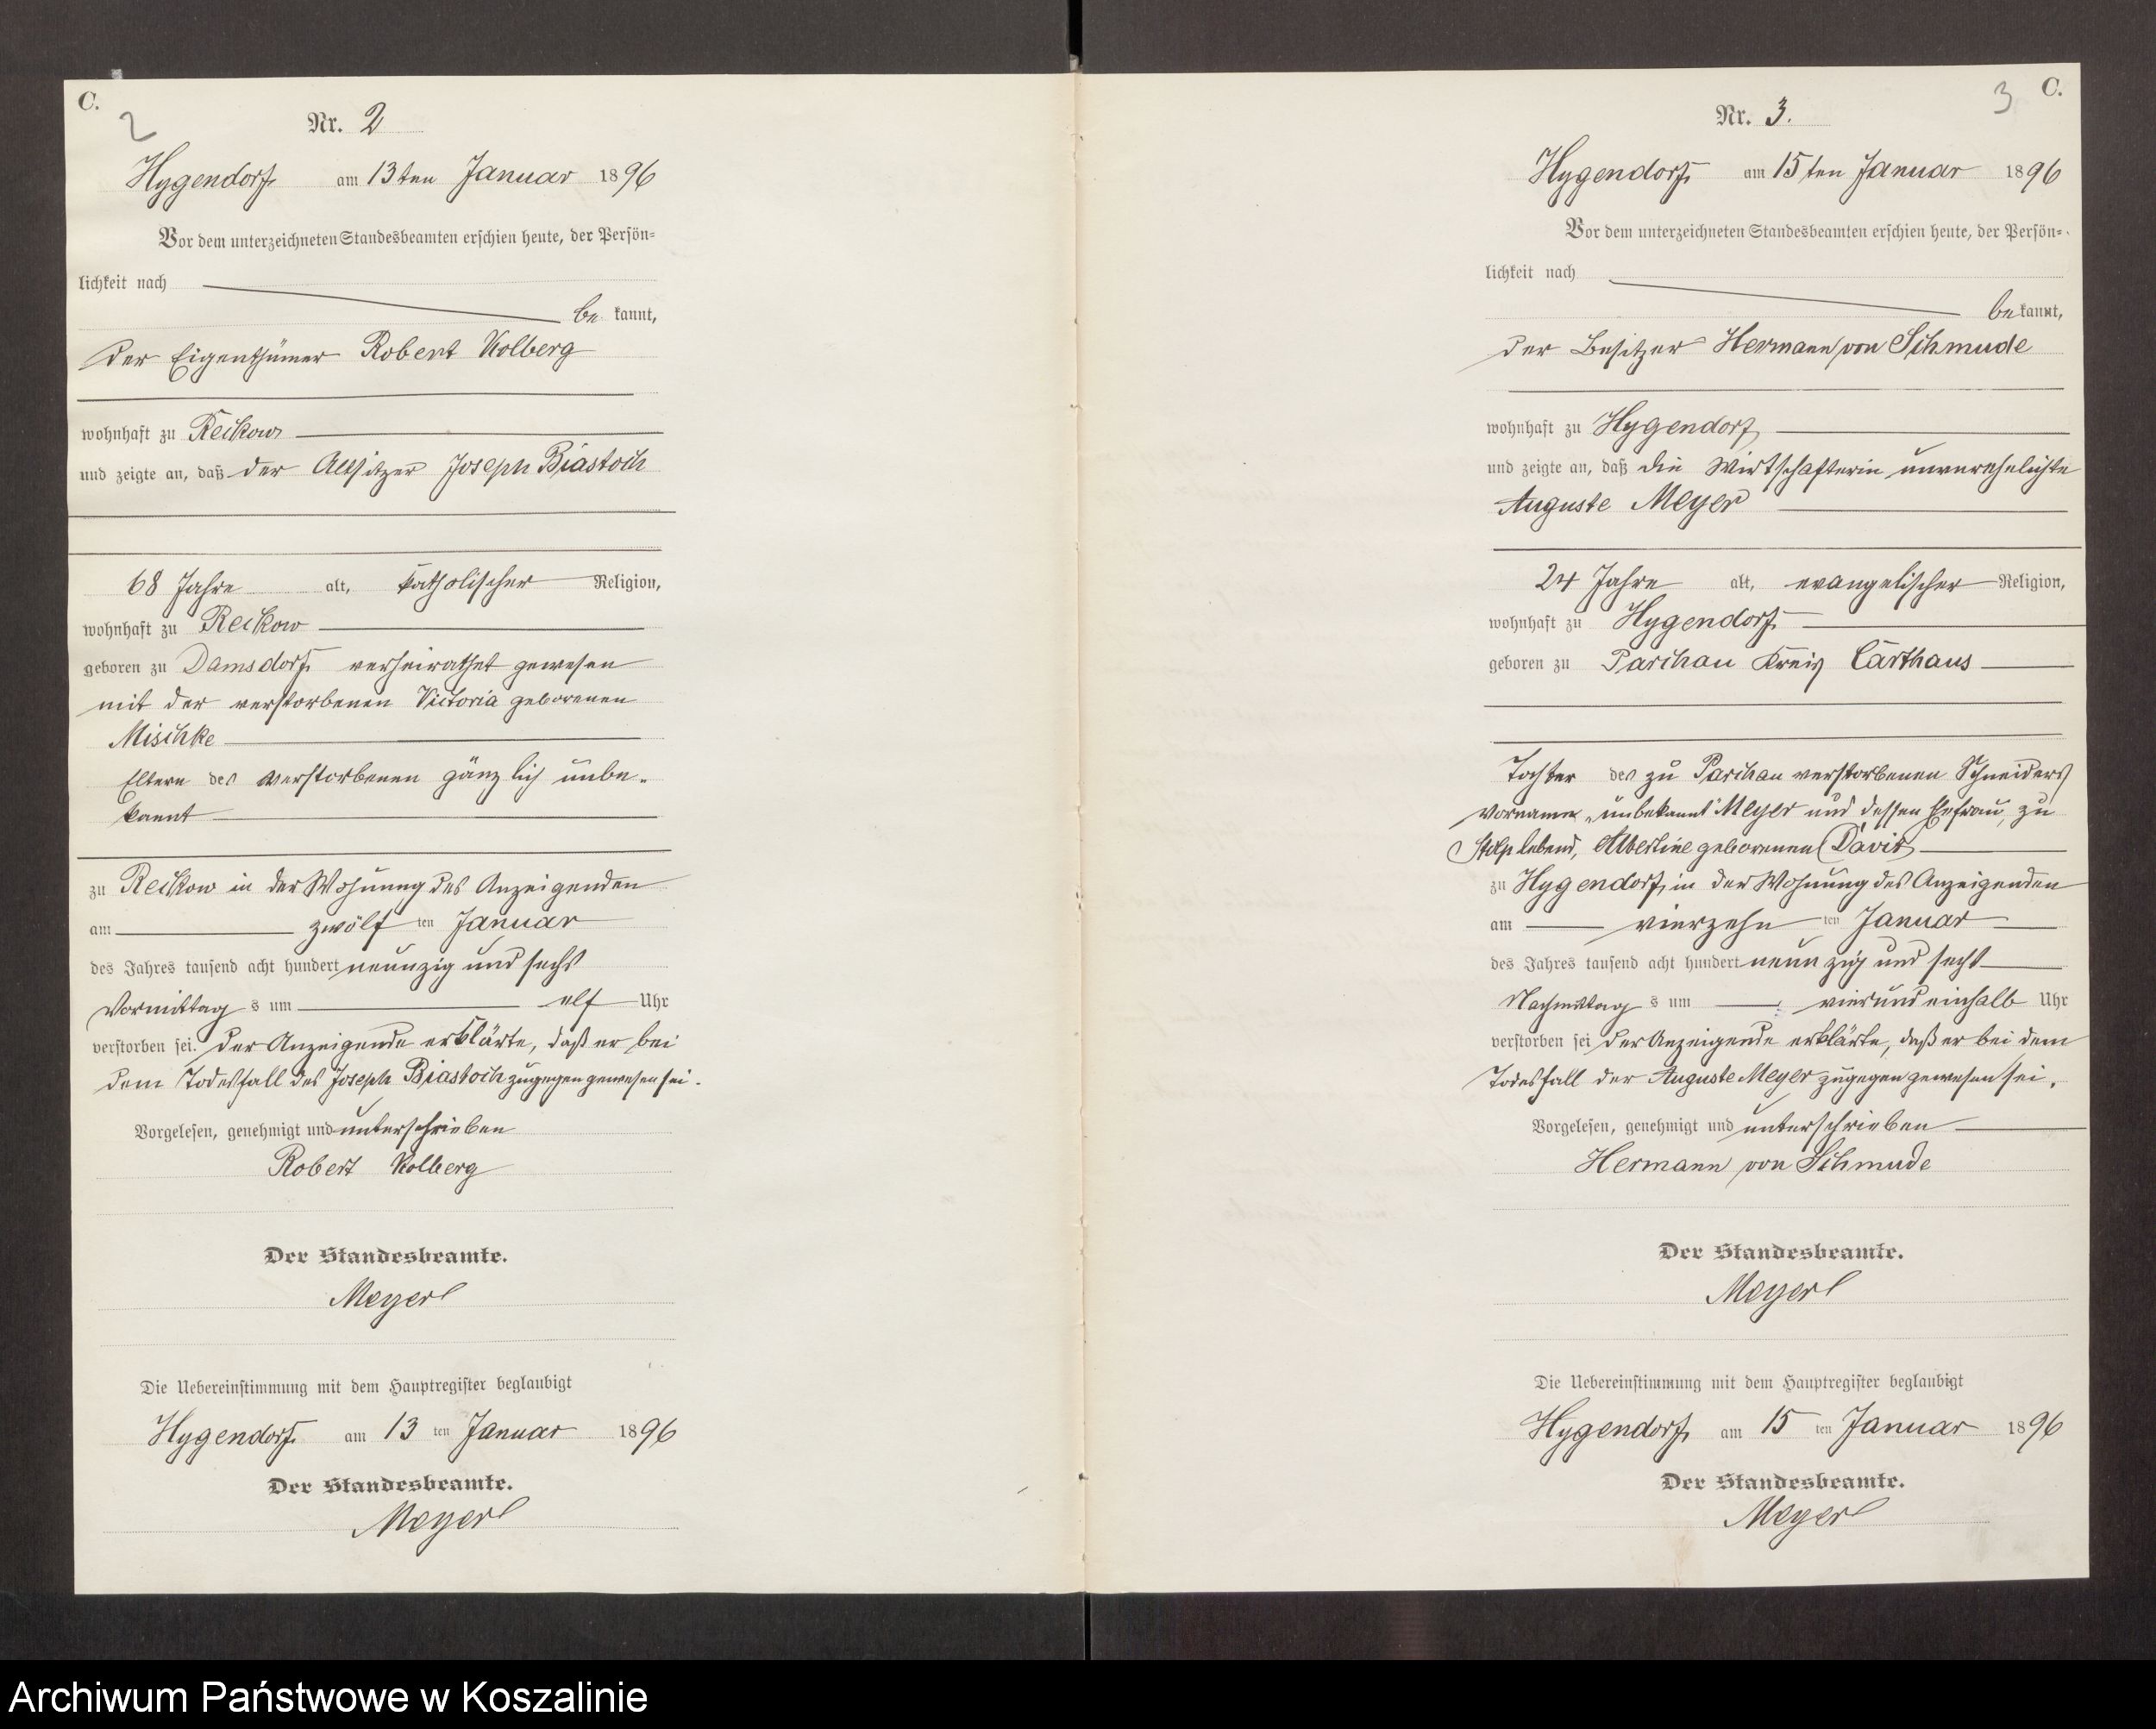 C.
2
Nr. 2
Hygendorf am 13ten Januar 1896
Vor dem unterzeichneten Standesbeamten erschien heute, der Persön=
lichkeit nach
be kannt,
der Eigenthümer Robert Kolberg
wohnhaft zu Reckow
und zeigte an, daß der Altsitzer Joseph Biastoch
68 Jahre alt, katholischer Religion,
wohnhaft zu Reckow
geboren zu Damsdorf verheirathet gewesen
mit der verstorbenen Victoria geborenen
Mischke
Eltern des verstorbenen gänzlich unbe-
kannt
zu Reckow in der Wohnung des Anzeigenden
am zwölf ten Januar
des Jahres tausend acht hundert neunzig und sechs
Vormittag s um elf Uhr
verstorben sei. Der Anzeigende erklärte, daß er bei
dem Todesfall des Joseph Biastoch zugegen gewesen sei.
Vorgelesen, genehmigt und unterschrieben
Robert Kolberg
Der Standesbeamte.
Meyer
Die Uebereinstimmung mit dem Hauptregister beglaubigt
Hygendorf am 13 ten Januar 1896
Der Standesbeamte.
Meyer
3
C.
Nr. 3.
Hygendorf am 15ten Januar 1896
Vor dem unterzeichneten Standesbeamten erschien heute, der Persön=
lichkeit nach
be kannt,
der Besitzer Hermann von Schmude
wohnhaft zu Hygendorf
und zeigte an, daß die Wirtschafterin unverehelichte
Auguste Meyer
24 Jahre alt, evangelischer Religion,
wohnhaft zu Hygendorf
geboren zu Parchau Kreis Carthaus
Tochter des zu Parchau verstorbenen Schneiders
Vorname „unbekannt" Meyer und dessen Ehefrau, zu
Stolp lebend, Albertine geborenen David
zu Hygendorf, in der Wohnung des Anzeigenden
am vierzehn ten Januar
des Jahres tausend acht hundert neunzig und sechs
Nachmittag s um vier und einhalb Uhr
verstorben sei Der Anzeigende erklärte, daß er bei dem
Todesfall der Auguste Meyer zugegen gewesen sei.
Vorgelesen, genehmigt und unterschrieben
Hermann von Schmude
Der Standesbeamte.
Meyer
Die Uebereinstimmung mit dem Hauptregister beglaubigt
Hygendorf am 15 ten Januar 1896
Der Standesbeamte.
Meyer
Archiwum Państwowe w Koszalinie